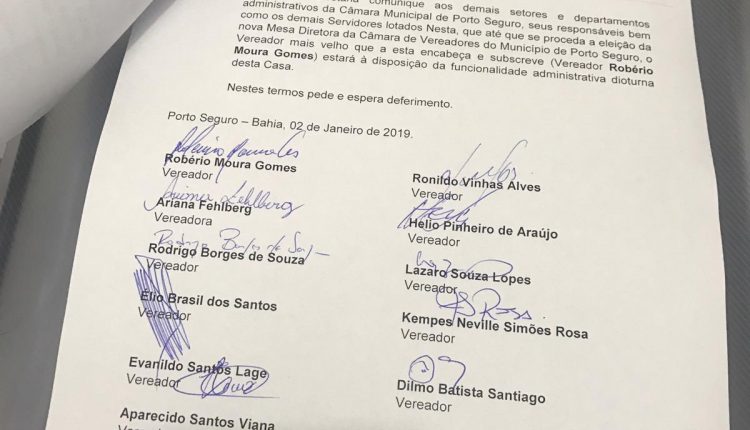 comunique aos demais setores e departamentos
administrativos da Câmara Municipal de Porto Seguro, seus responsáveis bem
como os demais Servidores lotados Nesta, que até que se proceda a eleição da
nova Mesa Diretora da Câmara de Vereadores do Município de Porto Seguro, o
Vereador mais velho que a esta encabeça e subscreve (Vereador Robério
Moura Gomes) estará à disposição da funcionalidade administrativa dioturna
desta Casa.
Nestes termos pede e espera deferimento.
Porto Seguro – Bahia, 02 de Janeiro de 2019.
Robério Moura Gomes
Vereador
Ariana Fehlberg
Ariana Fehlberg
Vereadora
Rodrigo Borges de Souza
Rodrigo Borges de Souza
Vereador
Élio Brasil dos Santos
Vereador
Evanildo Santos Lage
Vereador
Aparecido Santos Viana
Ronildo Vinhas Alves
Vereador
Helio Pinheiro de Araújo
Vereador
Lazaro Souza Lopes
Vereador
Rosa
Kempes Neville Simões Rosa
Vereador
Dilmo Batista Santiago
Vereador